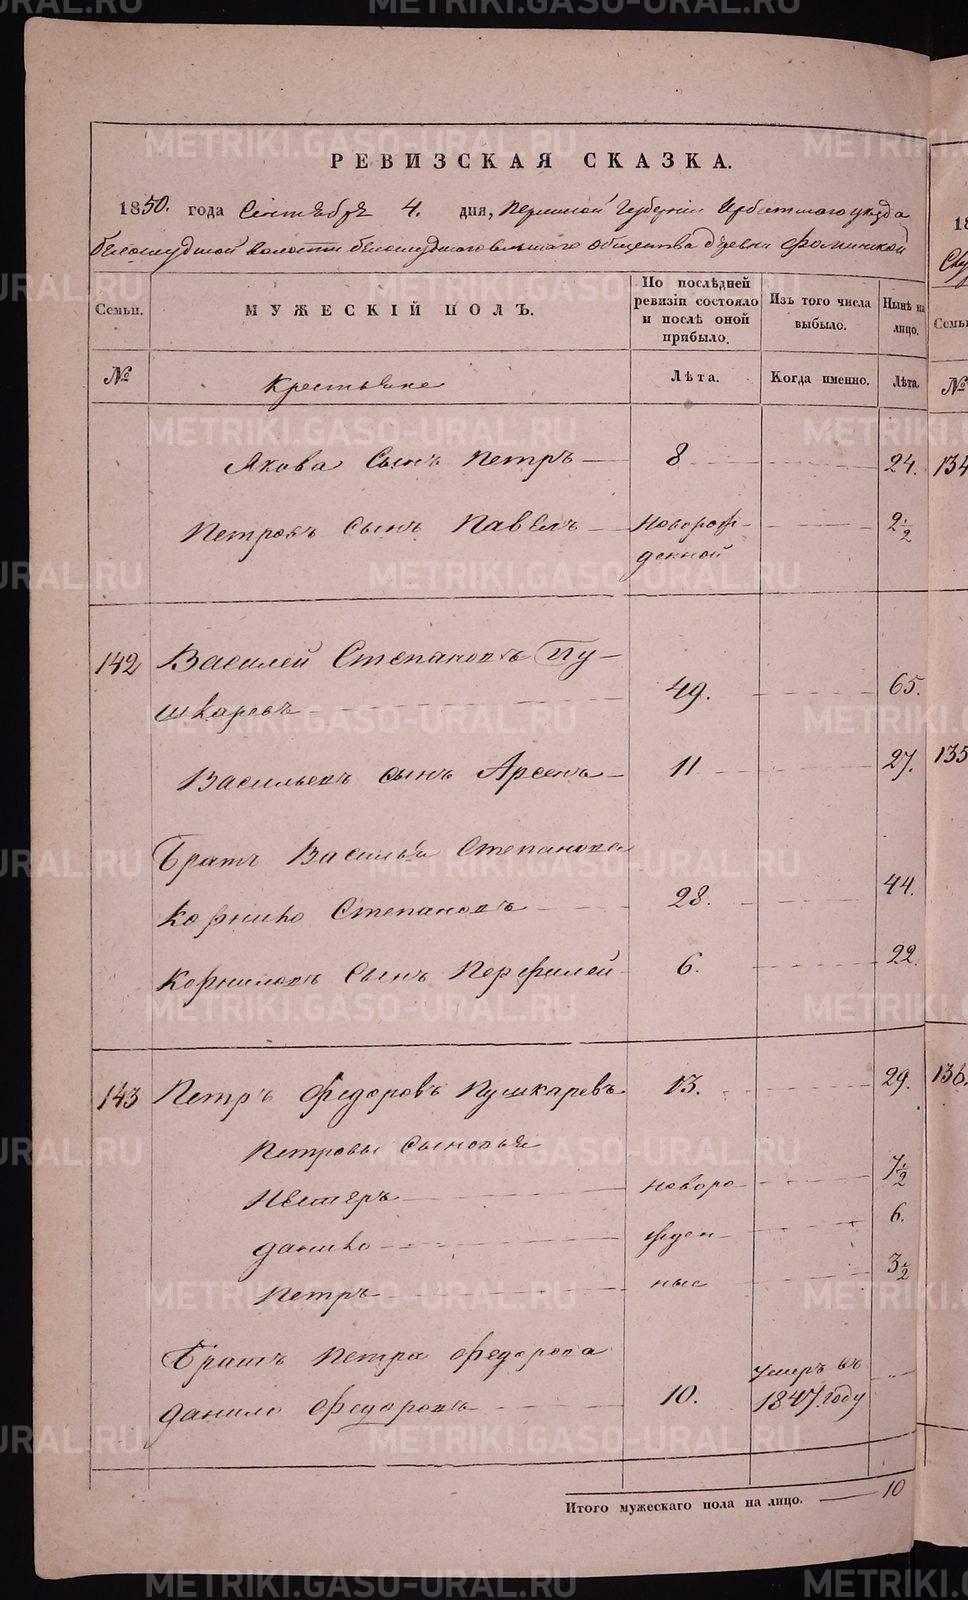 РЕВИЗСКАЯ СКАЗКА.
1850. года Сентября 4. дня, Пермской Губернии Ирбитского уезда
Белослудской волости Белослудского общества деревни Фоминской
Семьи.
МУЖЕСКІЙ ПОЛЪ.
По послѣдней ревизіи состояло и послѣ оной прибыло.
Изъ того числа выбыло.
Нынѣ на лицо.
№
Крестьяне
Лѣта.
Когда именно.
Лѣта.
Якова Сынъ Петръ 8 24.
Петровъ Сынъ Павелъ Новорож- 2 1/2
денной
142 Василей Степановъ Пу-
шкаревъ 49. 65.
Васильевъ сынъ Арсенъ 11 27.
Братъ Василья Степанова
Корнило Степановъ 28. 44.
Корниловъ Сынъ Перфилей 6. 22.
143 Петръ Федоровъ Пушкаревъ 13. 29.
Петровы Сыновья
новоро 7 1/2
Данило жден 6.
Петръ ные 3 1/2
Братъ Петра Федорова
Данило Федоровъ 10. Умеръ въ
1847. году
Итого мужескаго пола на лицо. 10
134
135
136.
METRIKI.GASO-URAL.RU